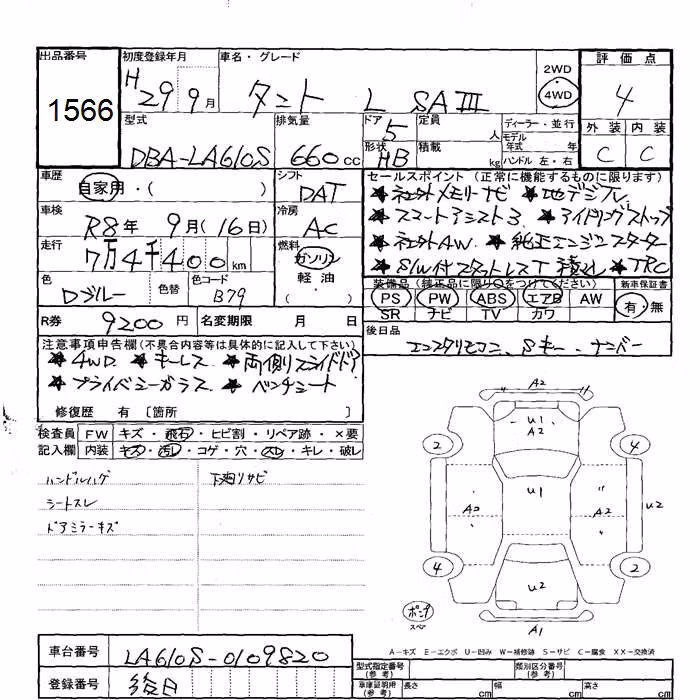 出品番号 初度登録年月 車名・グレード 2WD 評価点
1566 H29 9月 タント L SAⅢ 4WD 4
型式 排気量 ドア 定員 ディーラー・並行 外装 内装
DBA-LA610S 660cc 5 人 モデル年式 年 C C
形状 積載 HB kg ハンドル 左・右
車歴 シフト セールスポイント (正常に機能するものに限ります)
自家用・( ) DAT ★社外メモリナビ ★地デジTV
車検 冷房 ★スマートアシスト3 ★アイドリングストップ
R8年 9月(16日) AC ★社外AW ★純正エンジンスターター
走行 燃料 ★S/W付スタットレスT積込 ★TRC
7万4千400km ガソリン 軽油・( )
色 色替 色コード 装備品(純正品に限り○をつけてください) 新車保証書
Dブルー B79 PS PW ABS エアB AW 有・無
SR ナビ TV カワ
R券 9200円 名変期限 月 日 後日品
エンスタリモコン、Sキー、ナンバー
注意事項申告欄(不具合内容等は具体的に記入して下さい)
★4WD ★キーレス ★両側スライドドア
★プライバシーガラス ★ベンチシート
修復歴 有〔箇所 〕
検査員 FW キズ・飛石・ヒビ割・リペア跡・×要
記入欄 内装 キズ・汚レ・コゲ・穴・スレ・キレ・破レ
ハンドルハゲ 下廻リサビ
シートスレ
ドアミラーキズ
A2
U1
A2
2 4
U1
A2 A2 U2
4 2
U2
ポンプ
スペア
A1
A-キズ E-エクボ U-凹み W-補修跡 S-サビ C-腐食 XX-交換済
車台番号 LA610S-0109820 型式指定番号(参考) 類別区分番号(参考)
登録番号 後日 車庫証明用(参考) 長さ cm 幅 cm 高さ cm